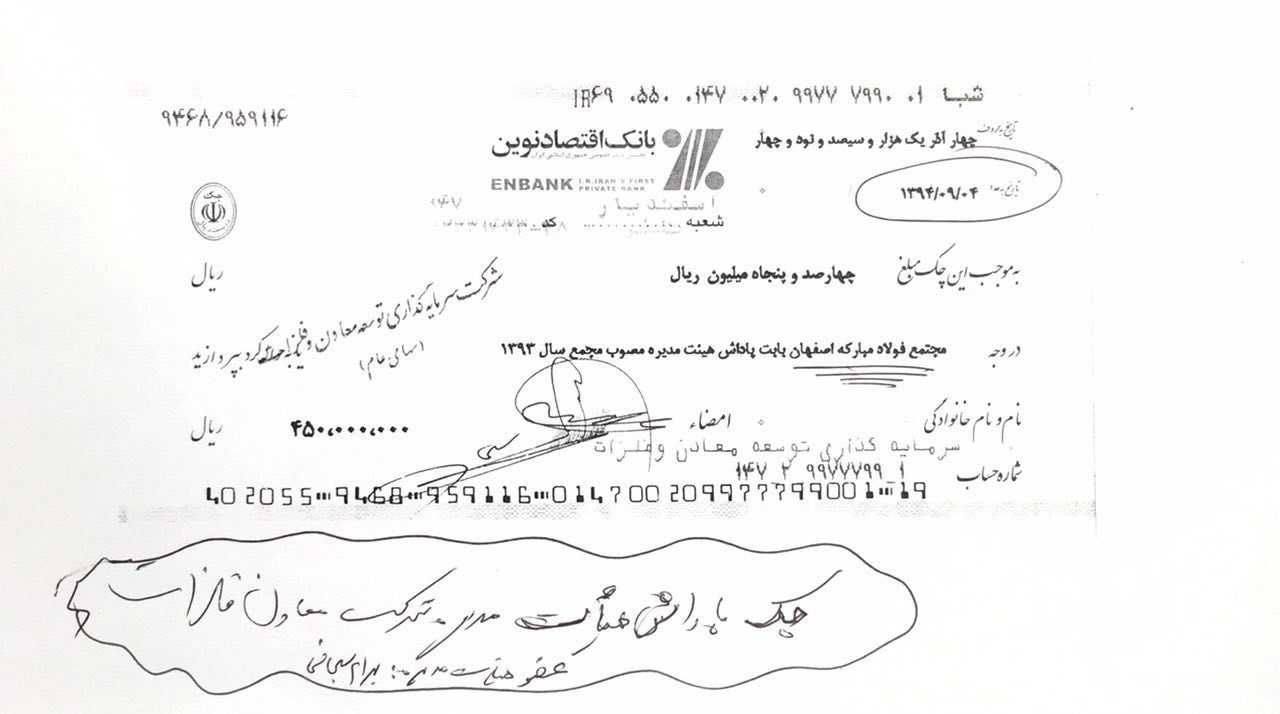 شبا IR۶۹ ۰۵۵۰ ۰۱۴۷ ۰۰۲۰ ۹۹۷۷ ۷۹۹۰ ۰۱
۹۴۶۸/۹۵۹۱۱۶
تاریخ به حروف چهار آذر یک هزار و سیصد و نود و چهار
بانک اقتصاد نوین
نخستین بانک خصوصی جمهوری اسلامی ایران
ENBANK I.R.IRAN'S FIRST PRIVATE BANK
تاریخ به عدد ۱۳۹۴/۰۹/۰۴
چک
اسفندیار
شعبه کد
به موجب این چک مبلغ چهارصد و پنجاه میلیون ریال ریال
در وجه مجتمع فولاد مبارکه اصفهان بابت پاداش هیئت مدیره مصوب مجمع سال ۱۳۹۳
شرکت سرمایه گذاری توسعه معادن و فلزات
(سهامی عام)
بپردازید
نام و نام خانوادگی امضاء ۴۵۰,۰۰۰,۰۰۰ ریال
سرمایه گذاری توسعه معادن وفلزات
شماره حساب ۱۴۷ ۲ ۹۹۷۷۷۹۹ ۱
402055 9468 959116 0147002099777799001 19
چک پاداش هیأت مدیره شرکت معادن فلزات
عضو هیئت مدیره: بهرام سبحانی